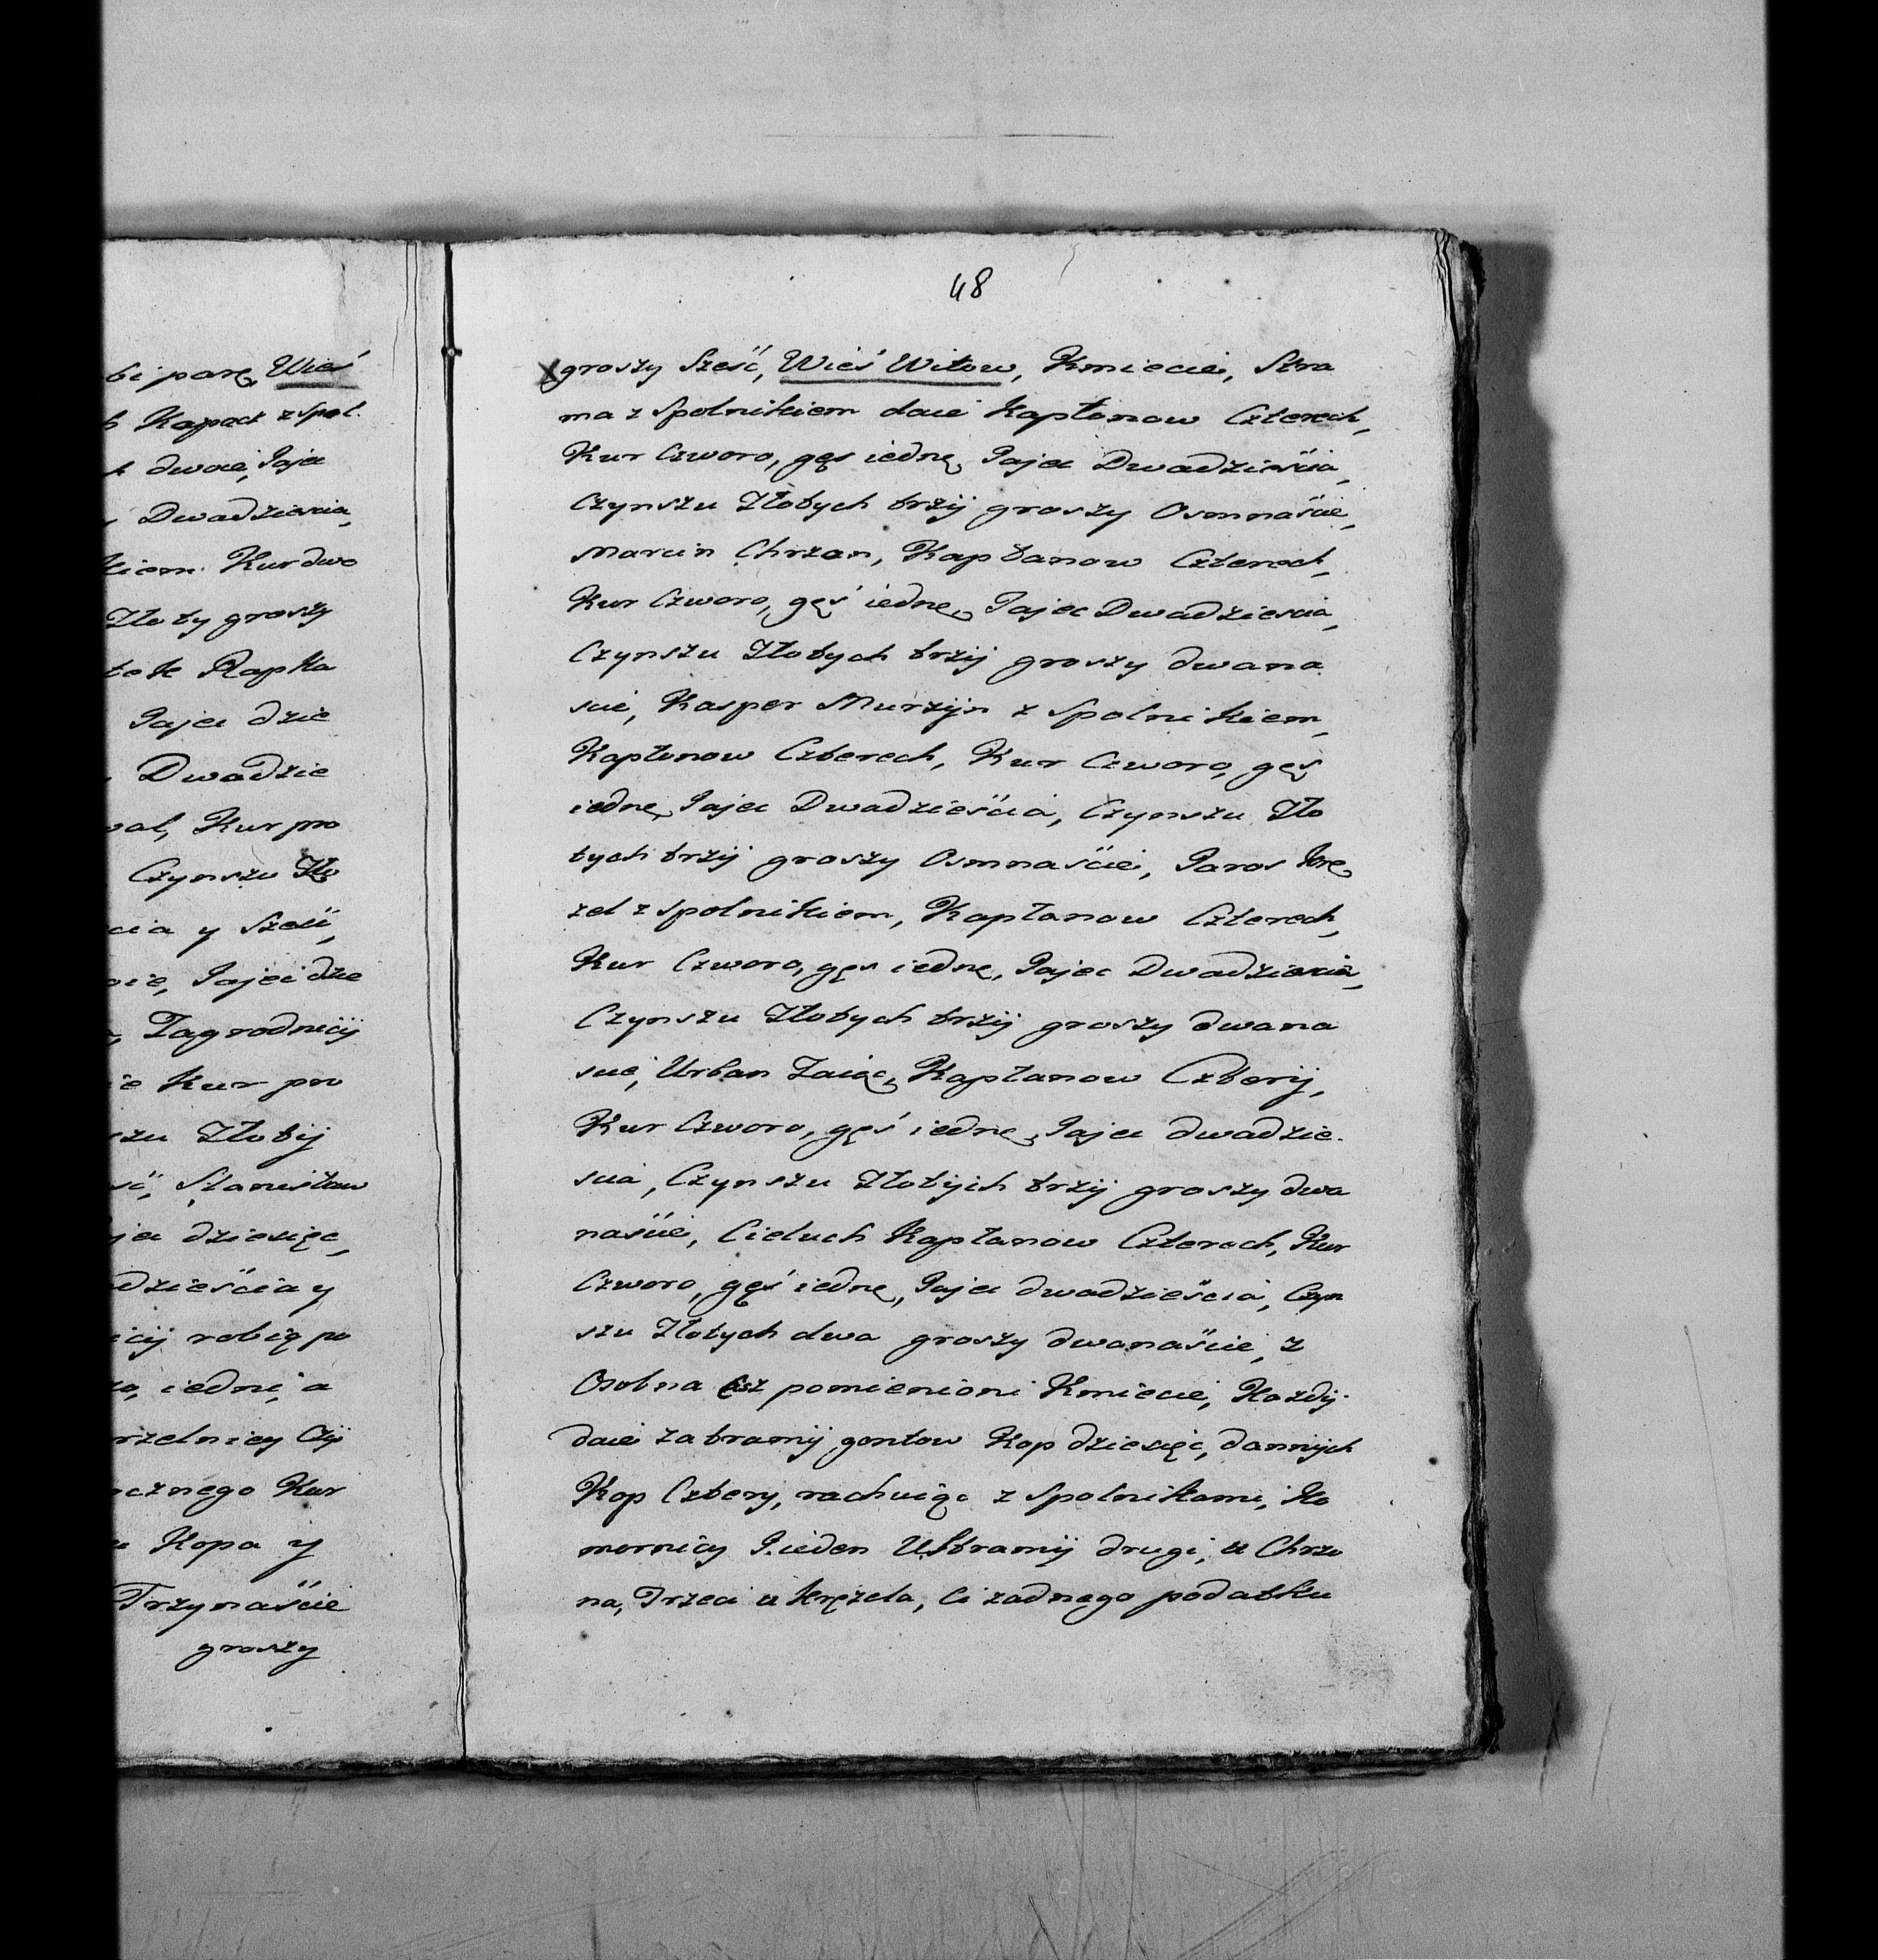 bi parę, Wieś
Kapach z spol.
dwoie, Jajec
Dwadziescia,
kiem Kur dwo
Złoty groszy
tek Rapka
Jajec dzie
Dwadzie
wal, Kur pro
Czynszu Zło
cia y Sześć,
oie, Jajec dzie
Zagrodnicy
ie Kur pro
szu Złotÿ
sć, Stanisław
jec dziesięc,
adzieścia y
icÿ robią po
iedni, a
rzelnicy Cÿ
cznego Kur
Kopa ÿ
Trzynaście
groszy
48
groszy Sześć, Wieś Witow, Kmiecie, Stra
ma z Spolnikiem daie Kapłonow Czterech,
Kur Czworo, gęs iednę, Jajec Dwadzieścia,
Czynszu Złotych trzÿ groszy Osmnaście,
Marcin Chrzan, Kapłanow Czterech,
Kur Czworo, gęś iednę, Jajec Dwadziescia,
Czynszu Złotych trzÿ groszy dwana
scie, Kasper Murzÿn z Spolnikiem,
Kapłonow Czterech, Kur Czworo, gęs
iednę, Jajec Dwadzieścia, Czynszu Zło
tych trzÿ groszy Osmnaście, Jaros Krę
zel z Spolnikiem, Kapłanow Czterech,
Kur Czworo, gęs iednę, Jajec Dwadziescia,
Czynszu Złotych trzÿ groszy dwana
scie, Urban Zaiąc, Kapłanow Czterÿ,
Kur Czworo, gęś iednę, Jajec dwadzie
scia, Czynszu Złotÿch trzÿ groszy dwa
naście, Cieluch Kapłanow Czterech, Kur
Czworo, gęś iednę, Jajec dwadzieścia, Czyn
szu Złotych dwa groszy dwanaście, z
Osobna pomienioni Kmiecie, Kazdÿ
daie za tramÿ gontow Kop dziesięc, dannÿch
Kop Cztery, rachuiąc z Spolnikami, Ko
mornicy Jieden U Stramÿ drugi, u Chrza
na, Trzeci u Kręzela, Ci zadnego podatku